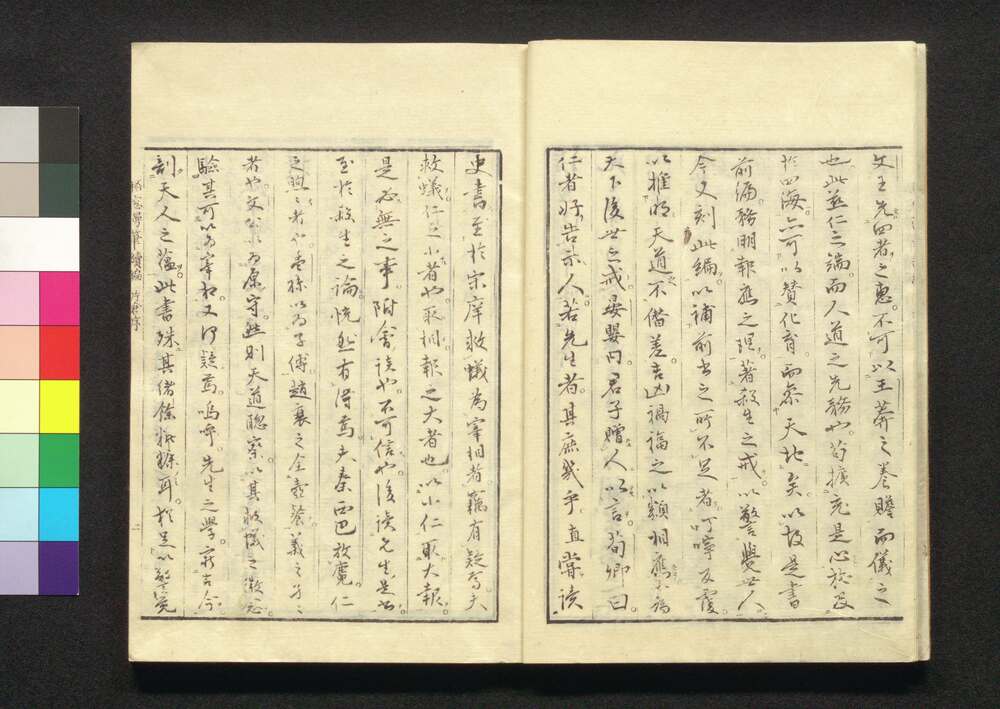 文王先四者之惠不可以王莽之養贍而儀之
也此慈仁之端而人道之先務也苟擴充是心於及
於四海亦可以贊化育而參天地矣以故是書
前編務明報應之理著殺生之戒以警覺世人
今又刻此編以補前書之所不足者叮嚀反覆
以推明天道不僭差吉凶禍福之以類相應為
天下後世之戒晏嬰曰君子贈人以言荀卿曰
仁者好告示人若先生者其庶幾乎直嘗讀
史書至於宋庠救蟻為宰相者竊有疑焉夫
救蟻仁之小者也取相報之大者也以小仁取大報
是必無之事附會談也不可信也後讀先生是書
至於殺生之論恍然有得焉夫秦西巴放麑仁
之煦々者
者也
為
守然則天道聰察以其救蟻之微志
驗其可以為宰相又何疑焉嗚呼先生之學窮古今
剖天人之蘊此書殊其緒餘糟粕耳於足以警